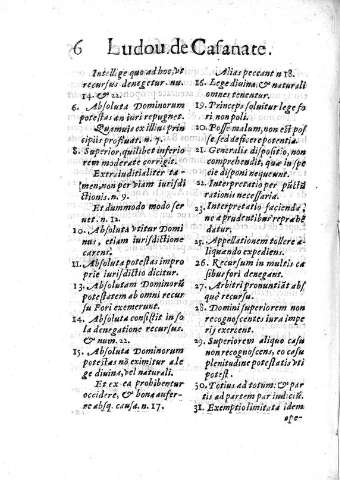 6 Ludou. de Casanate.
Intellige quo ad hoc, vt
recursus denegetur. nu.
14. & 22.
6. Absoluta Dominorum
potestas an iuri repugnet.
Quamuis ex illius prin
cipiis profluat. n. 7.
8. Superior, quilibet inferio
rem moderate corrigit.
Extraiuditialiter ta-
men, non per viam iurisdi
ctionis. n. 9.
Et dummodo modo ser
uet. n. 12.
10. Absoluta vtitur Domi
nus, etiam iurisdictione
carens.
11. Absoluta potestas impro
prie iurisdictio dicitur.
13. Absolutam Dominorũ
potestatem ab omni recur
su Fori exemerunt.
14. Absoluta consistit in so
la denegatione recursus.
& num. 22.
15. Absoluta Dominorum
potestas nõ eximitur a le
ge diuina, vel naturali.
Et ex ea prohibentur
occidere, & bona aufer-
re absq. causa. n. 17.
Alias peccant n 18.
16. Lege diuina, & naturali
omnes tenentur.
19. Princeps soluitur lege fo
ri non poli.
20. Posse malum, non est pos
se, sed deficere potentia.
21. Generalis dispositio, non
comprehendit, quæ in spe
cie disponi nequeunt.
22. Interpretatio per pũctũ
rationis necessaria.
23. Interpretatio facienda,
ne a prudentibus repræhẽ
datur.
25. Appellationem tollere a-
liquando expediens.
26. Recursum in multis ca
sibus fori denegant.
27. Arbitri pronuntiãt abs
què recursu.
28. Domini superiorem non
recognoscentes iura impe
rij exercent.
29. Superiorem aliquo casu
non recognoscens, eo casu
plenitudine potestatis vti
potest.
30. Totius ad totum: & par
tis ad partem par iudiciũ.
31. Exemptio limitata idem
ope-